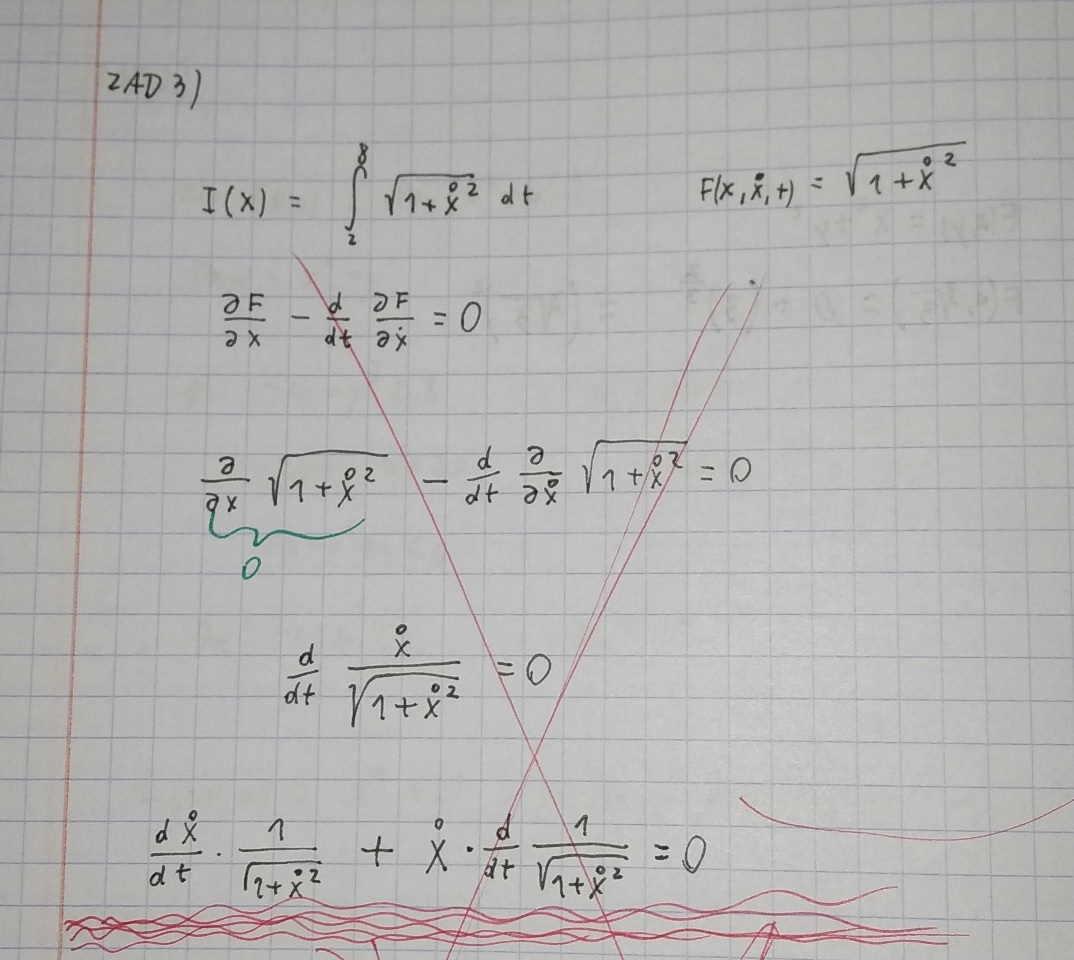 ZAD 3)
I(x) = ∫₂⁸ √(1+ẋ²) dt    F(x, ẋ, t) = √(1+ẋ²)
∂F/∂x − d/dt ∂F/∂ẋ = 0
∂/∂x √(1+ẋ²) − d/dt ∂/∂ẋ √(1+ẋ²) = 0
0
d/dt ẋ/√(1+ẋ²) = 0
dẋ/dt · 1/√(1+ẋ²) + ẋ · d/dt 1/√(1+ẋ²) = 0